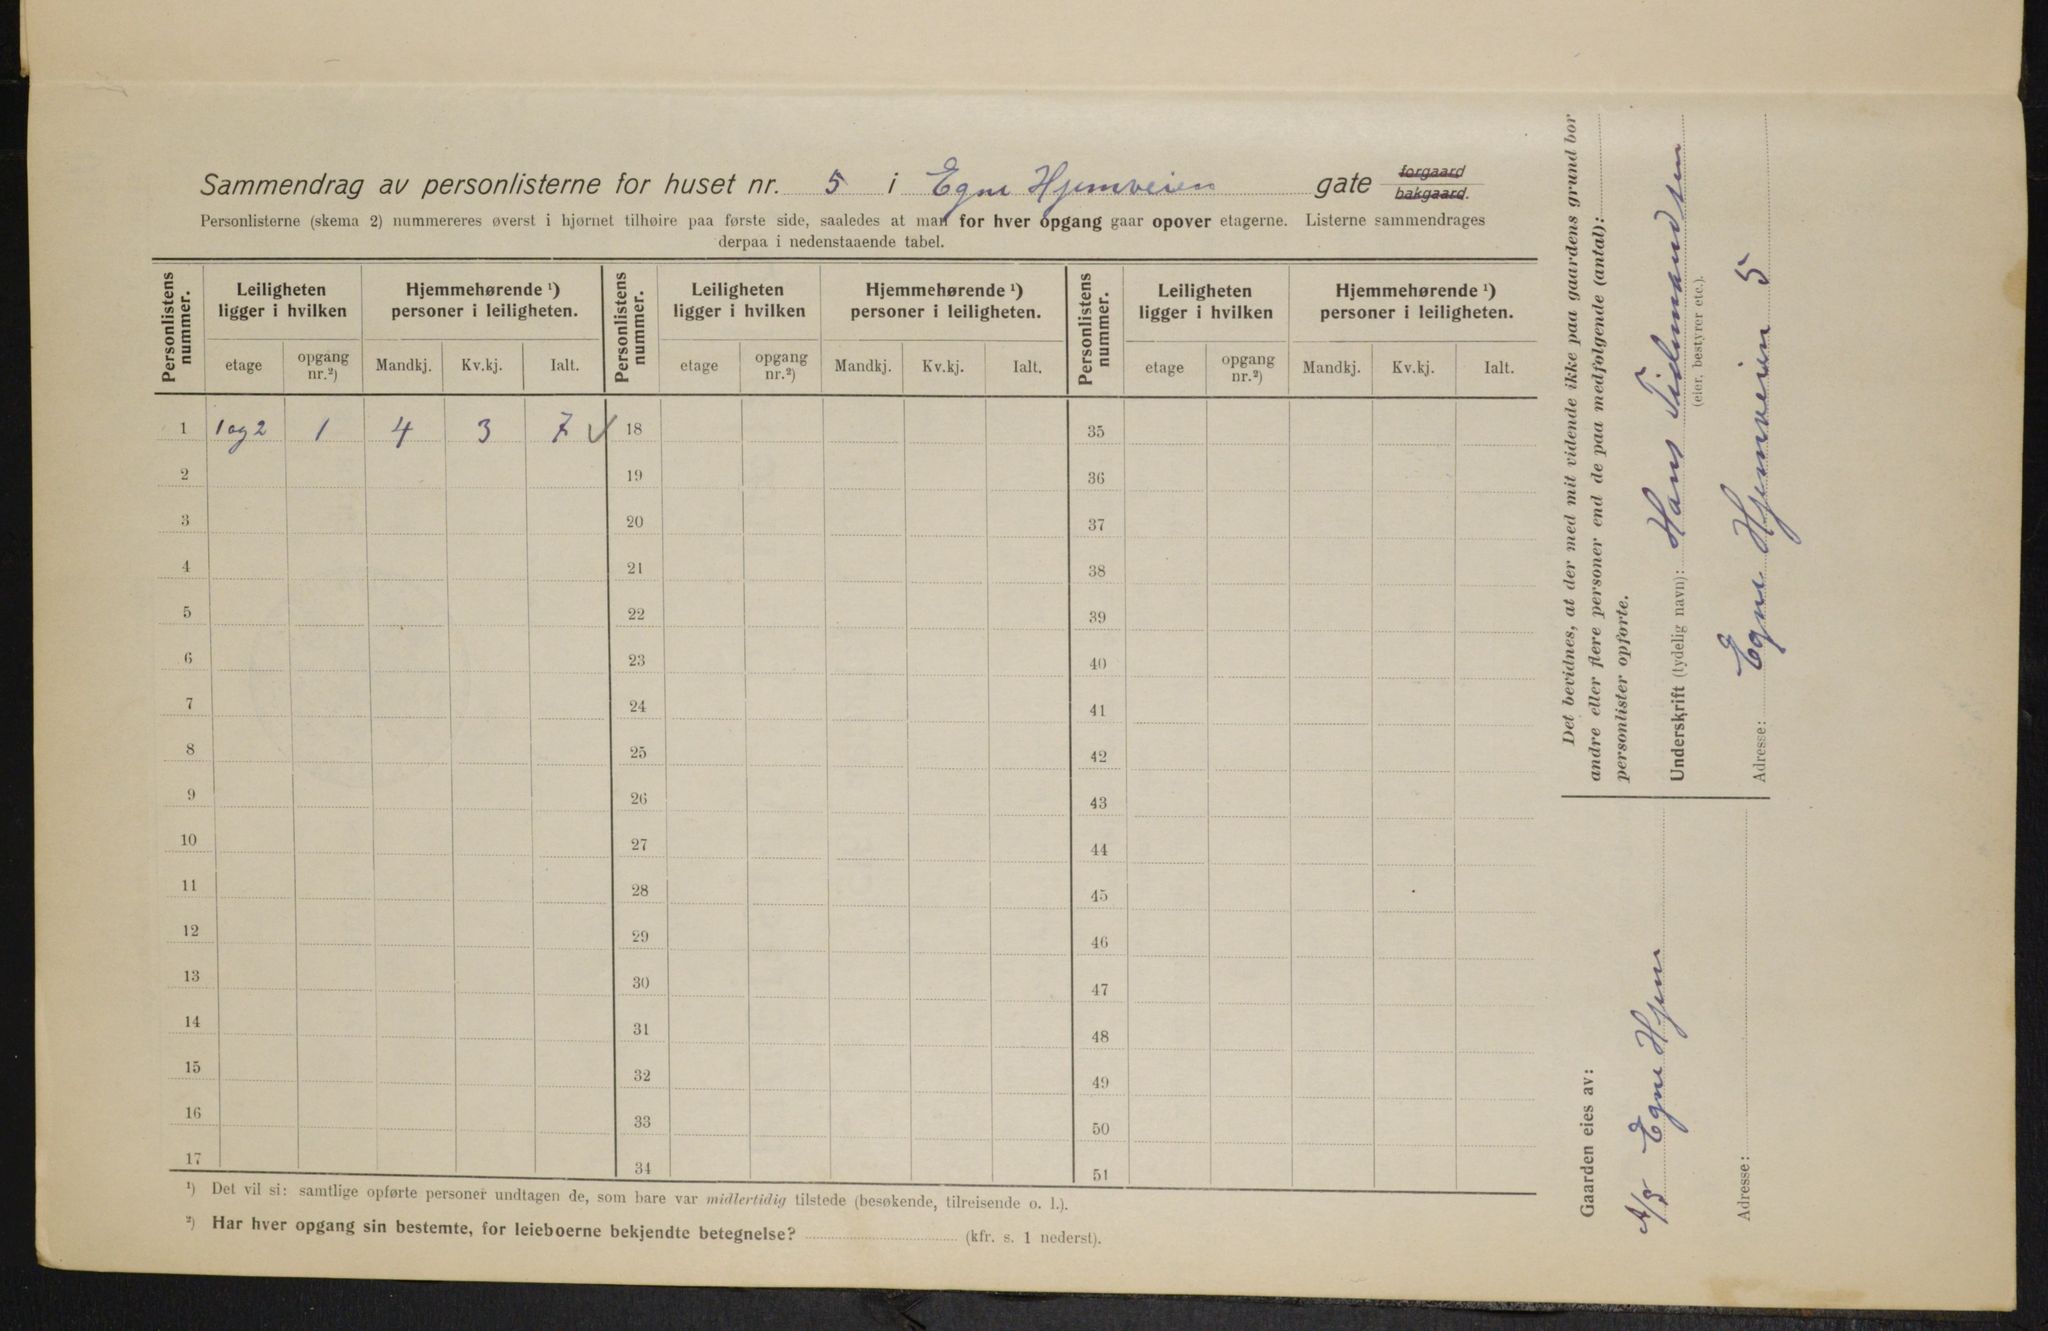 Sammendrag av personlisterne for huset nr. 5 i Egne Hjemveien gate forgaard bakgaard.
Personlisterne (skema 2) nummereres øverst i hjørnet tilhøire paa første side, saaledes at man for hver opgang gaar opover etagerne. Listerne sammendrages
derpaa i nedenstaaende tabel.
Personlistens nummer. Leiligheten ligger i hvilken Hjemmehørende ¹) personer i leiligheten. Personlistens nummer. Leiligheten ligger i hvilken Hjemmehørende ¹) personer i leiligheten. Personlistens nummer. Leiligheten ligger i hvilken Hjemmehørende ¹) personer i leiligheten.
etage opgang nr.²) Mandkj. Kv.kj. Ialt. etage opgang nr.²) Mandkj. Kv.kj. Ialt. etage opgang nr.²) Mandkj. Kv.kj. Ialt.
1 1 og 2 1 4 3 7 ✓ 18 35
2 19 36
3 20 37
4 21 38
5 22 39
6 23 40
7 24 41
8 25 42
9 26 43
10 27 44
11 28 45
12 29 46
13 30 47
14 31 48
15 32 49
16 33 50
17 34 51
¹) Det vil si: samtlige opførte personer undtagen de, som bare var midlertidig tilstede (besøkende, tilreisende o. l.).
²) Har hver opgang sin bestemte, for leieboerne bekjendte betegnelse? (kfr. s. 1 nederst).
Det bevidnes, at der med mit vidende ikke paa gaardens grund bor
andre eller flere personer end de paa medfølgende (antal):
personlister opførte.
Underskrift (tydelig navn): Hans Tidemandsen
(eier, bestyrer etc.).
Adresse: Egne Hjemveien 5
Gaarden eies av:
A/S Egne Hjem
Adresse: